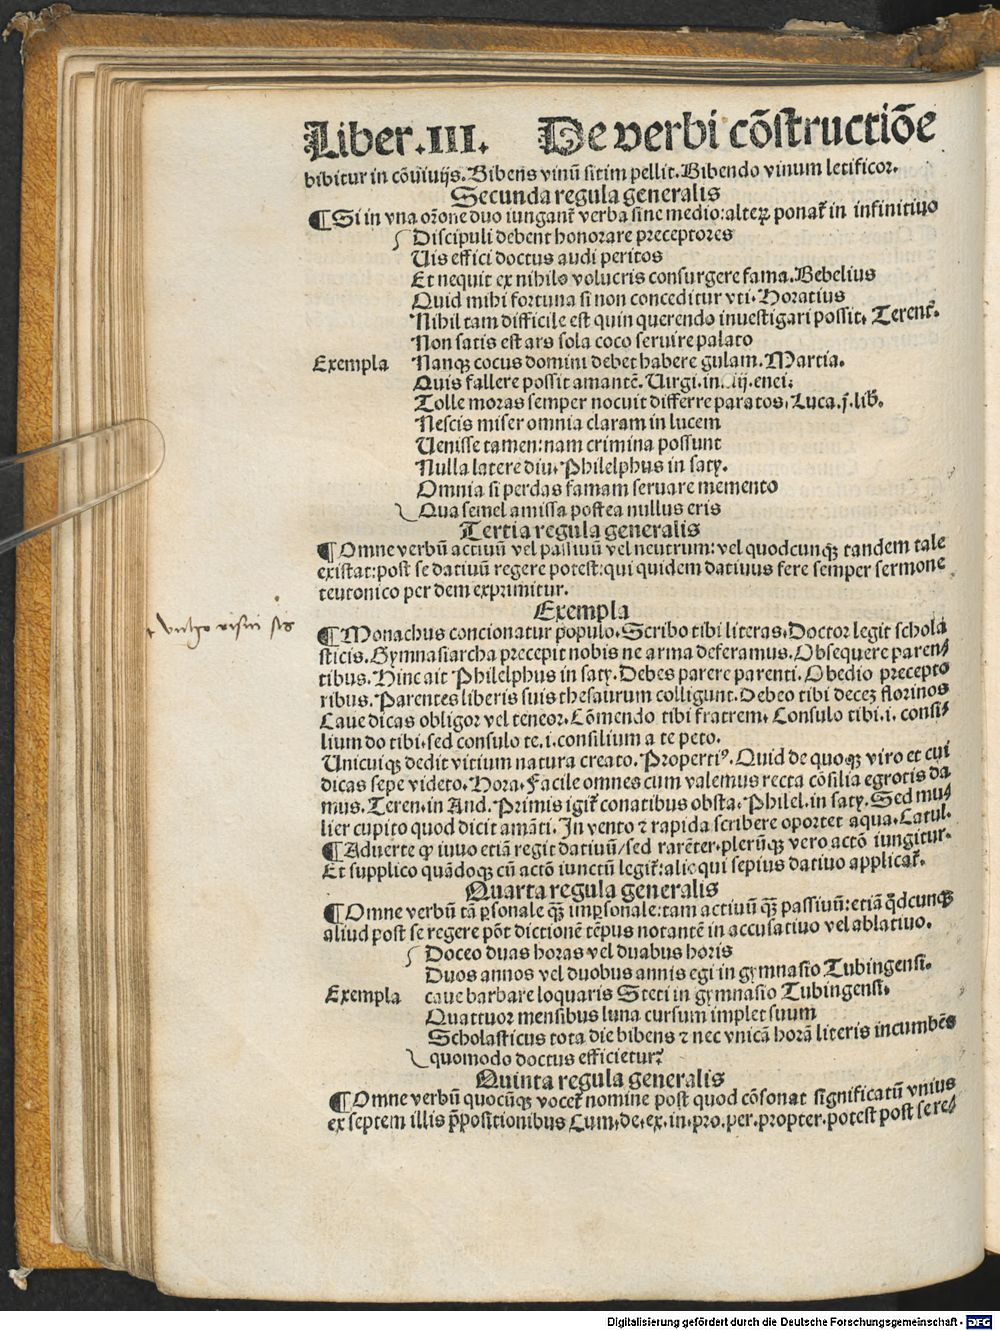 Liber.III. De verbi cõstructiõe
bibitur in cõuiuijs. Bibens vinũ sitim pellit. Bibendo vinum letificor.
Secunda regula generalis
¶ Si in vna orõne duo iungant᷑ verba sine medio: alteꝝ ponat᷑ in infinitiuo
Discipuli debent honorare preceptores
Uis effici doctus audi peritos
Et nequit ex nihilo volucris consurgere fama. Bebelius
Quid mihi fortuna si non conceditur vti. Horatius
Nihil tam difficile est quin querendo inuestigari possit. Terent᷑.
Non satis est ars sola coco seruire palato
Exempla Nanqꝫ cocus domini debet habere gulam. Martia.
Quis fallere possit amantẽ. Uirgi. in. .iij. enei:
Tolle moras semper nocuit differre paratos. Luca. j. lib᷑.
Nescis miser omnia claram in lucem
Uenisse tamen: nam crimina possunt
Nulla latere diu. Philelphus in satꝝ.
Omnia si perdas famam seruare memento
Qua semel amissa postea nullus eris
Tertia regula generalis
¶ Omne verbũ actiuũ vel passiuũ vel neutrum: vel quodcunqꝫ tandem tale
existat: post se datiuũ regere potest: qui quidem datiuus fere semper sermone
teutonico per dem exprimitur.
Exempla
¶ Monachus concionatur populo. Scribo tibi literas. Doctor legit schola
sticis. Gymnasiarcha precepit nobis ne arma deferamus. Obsequere paren/
tibus. Hinc ait Philelphus in satꝝ. Debes parere parenti. Obedio precepto
ribus. Parentes liberis suis thesaurum colligunt. Debeo tibi deceꝫ florinos
Caue dicas obligor vel teneor. Cõmendo tibi fratrem. Consulo tibi .i. consi/
lium do tibi. sed consulo te .i. consilium a te peto.
Unicuiqꝫ dedit vitium natura creato. Propertiꝰ. Quid de quoqꝫ viro et cui
dicas sepe videto. Hora. Facile omnes cum valemus recta cõsilia egrotis da
mus. Teren. in And. Primis igit᷑ conatibus obsta. Philel. in satꝝ. Sed mu/
lier cupito quod dicit amãti. In vento ⁊ rapida scribere oportet aqua. Catul.
¶ Aduerte ꝙ iuuo etiã regit datiuũ/sed rarẽter. plerũqꝫ vero actõ iungitur.
Et supplico quãdoqꝫ cũ actõ iunctũ legit᷑: alioqui sepius datiuo applicat᷑.
Quarta regula generalis
¶ Omne verbũ tã ꝑsonale qꝫ̃ imꝑsonale: tam actiuũ qꝫ̃ passiuũ: etiã qd̃cunqꝫ
aliud post se regere põt dictionẽ tẽpus notantẽ in accusatiuo vel ablatiuo.
Doceo duas horas vel duabus horis
Duos annos vel duobus annis egi in gymnasio Tubingensi.
Exempla caue barbare loquaris Steti in gymnasio Tubingensi.
Quattuor mensibus luna cursum implet suum
Scholasticus tota die bibens ⁊ nec vnicã horã literis incumbẽs
quomodo doctus efficietur?
Quinta regula generalis
¶ Omne verbũ quocũqꝫ vocet᷑ nomine post quod cõsonat significatũ vnius
ex septem illis p̃positionibus Cum. de. ex. in. pro. per. propter. potest post se re/
Digitalisierung gefördert durch die Deutsche Forschungsgemeinschaft - DFG